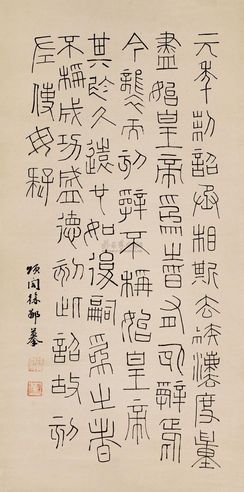 元年制詔丞相斯去疾灋度量
盡始皇帝爲之皆有刻辭焉
今襲號而刻辭不稱始皇帝
其於久遠也如後嗣爲之者
不稱成功盛德刻此詔故刻
左使毋疑
頌閣徐郙摹